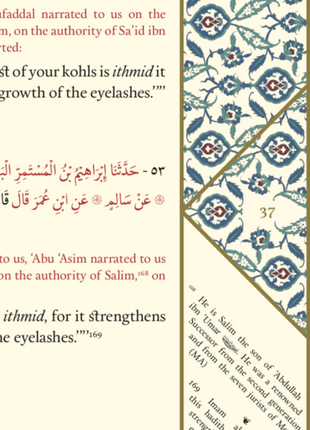 ufaddal narrated to us on the
m, on the authority of Sa'id ibn
rted:
st of your kohls is ithmid it
growth of the eyelashes.'"'
٥٣ - حَدَّثَنَا إِبْرَاهِيمُ بْنُ الْمُسْتَمِرِّ الْبَ
عَنْ سَالِمٍ عَنِ ابْنِ عُمَرَ قَالَ قَا
to us, 'Abu 'Asim narrated to us
on the authority of Salim,¹⁶⁸ on
ithmid, for it strengthens
he eyelashes.'"'¹⁶⁹
37
168 He is Salim the son of 'Abdullah
ibn 'Umar. He was a renowned
Successor from the second generation
and from the seven jurists of Me
(MA)
169 Imam
this hadith